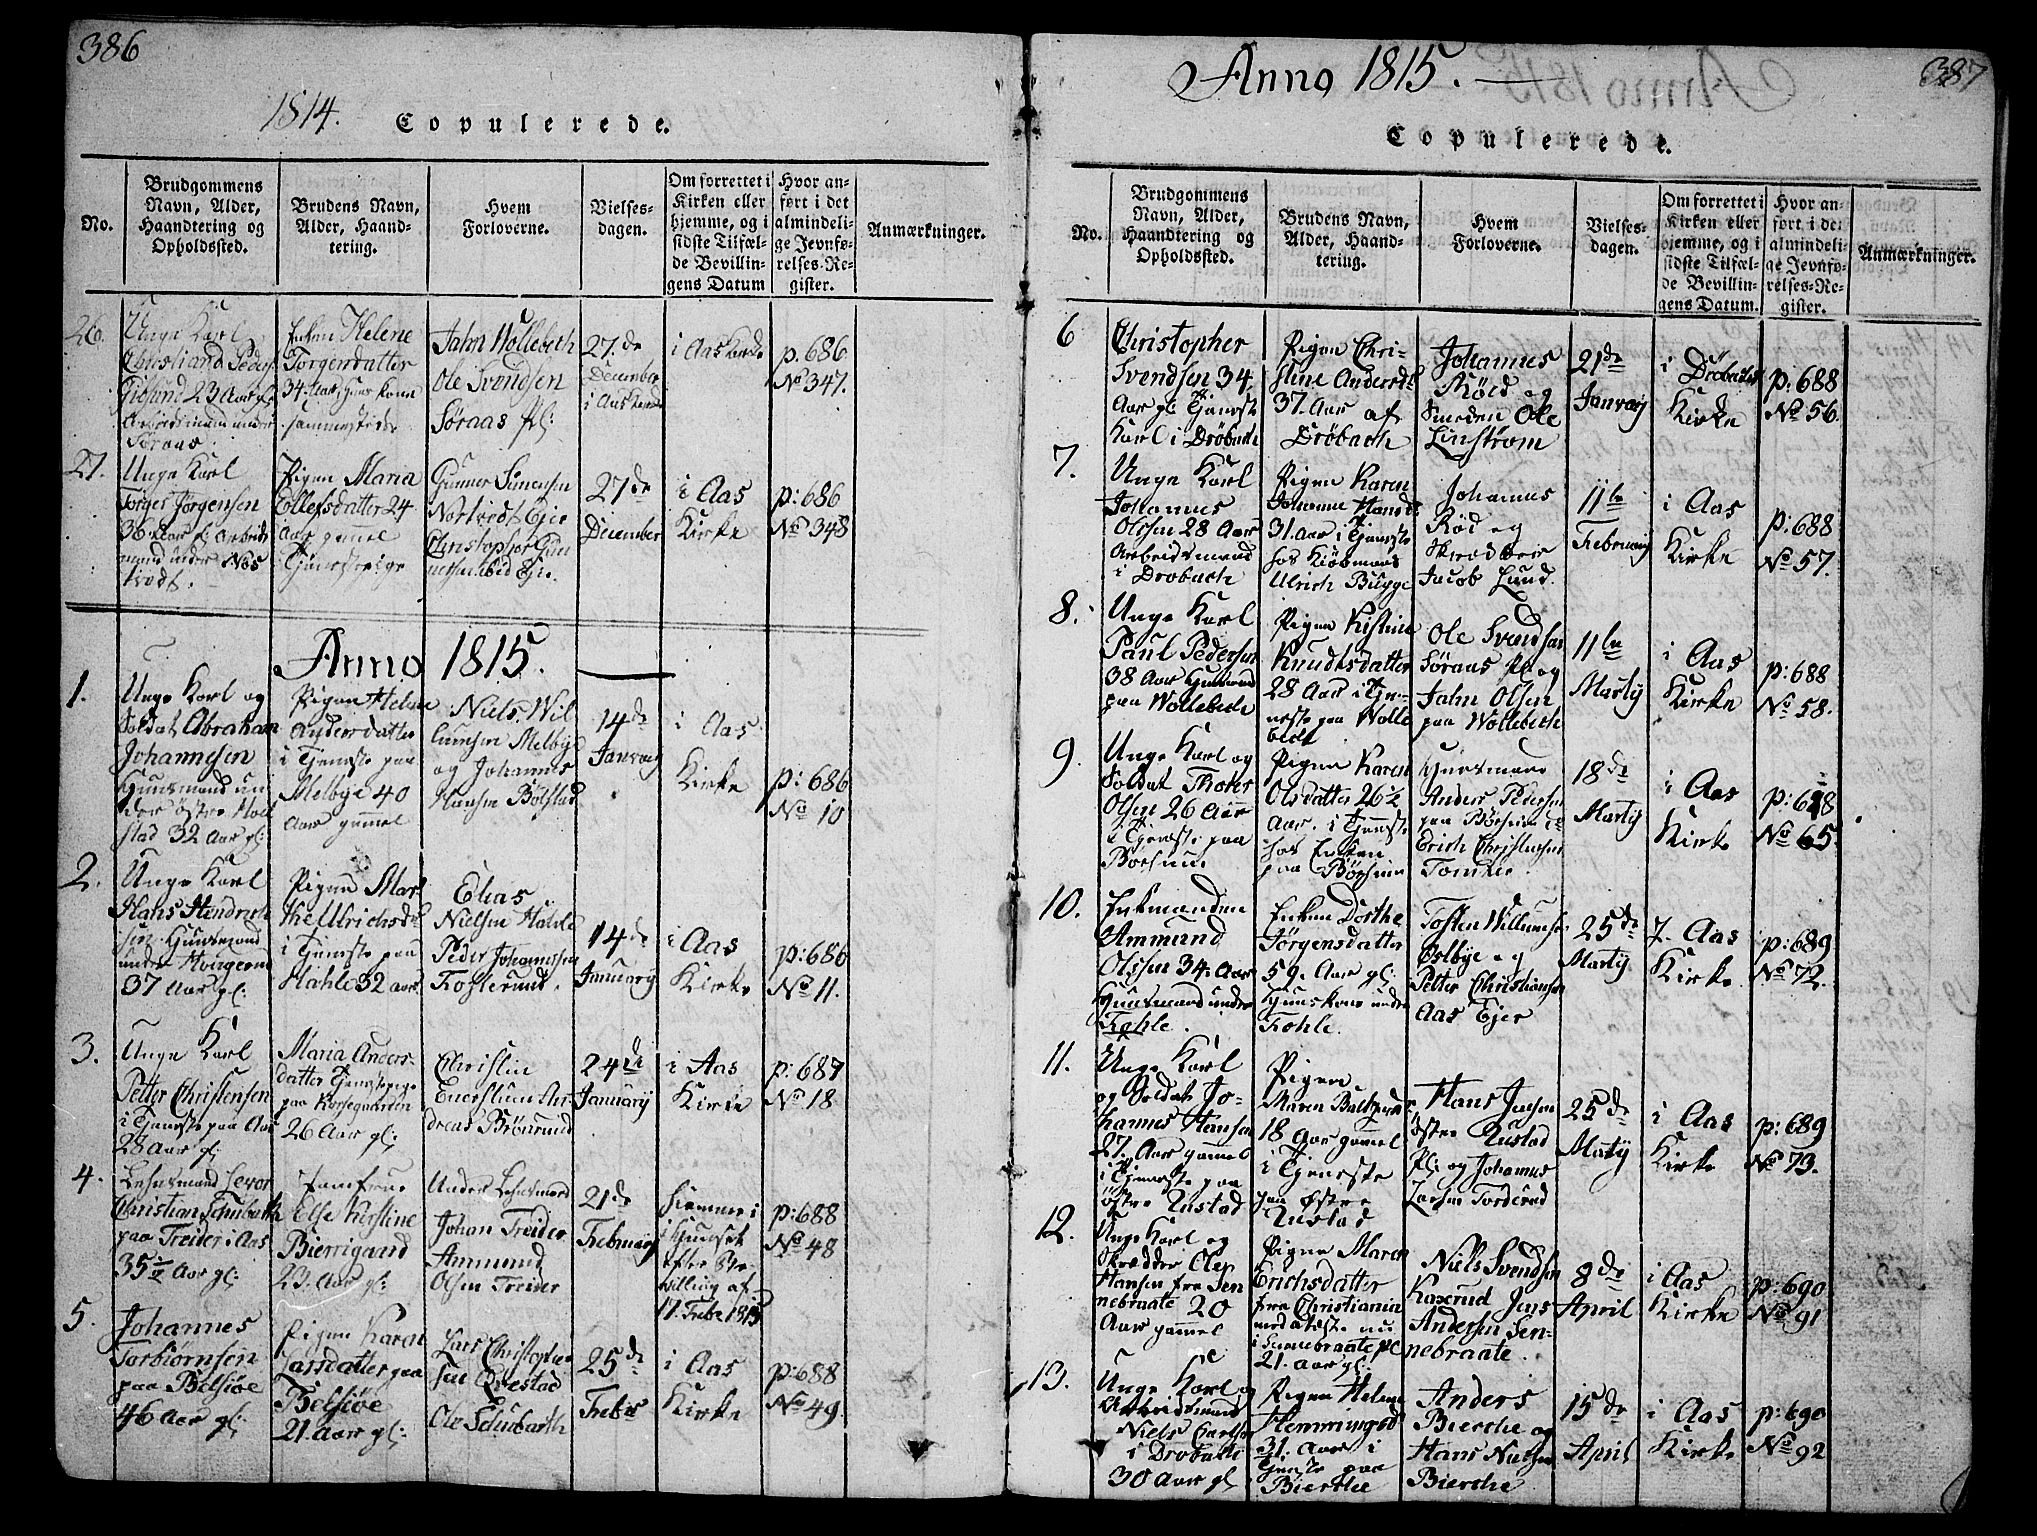 386
1814. Copulerede.
No.
Brudgommens
Navn, Alder,
Haandtering og
Opholdssted.
Brudens Navn,
Alder, Haand-
tering.
Hvem
Forloverne.
Vielses-
dagen.
Om forrettet i
Kirken eller
hjemme, og i
sidste Tilfæl-
de Bevillin-
gens Datum
Hvor an-
ført i det
almindeli-
ge Jevnfø-
relses-Re-
gister.
Anmærkninger.
26.
Unge Karl
Christian Peders
23 Aar gl
Arbeidsmand under
Søraas
Enken Helene
Torgersdatter
34 Aar, Huus kone
sammesteds
Jahn Wollebech
Ole Svendsen
Søraas Pl:
27. de
December
i Aas Kirke
i Aas Kirke
p. 686
No 347.
27.
Unge Karl
Torger Jørgensen
36 Aar gl: Arbeids
mand under Nos
trødt.
Pigen Maria
Ellefsdatter 24
aar gammel
Tjenestepige
Gunner Simensen
Nortvedt Ejer
Christopher Gun
nersen ibid Ejer.
27 de
December
i Aas
Kirke
p: 686
No 348
Anno 1815.
1.
Unge Karl og
Soldat Abraham
Johannesen
Huusmand un
der østre Moll
stad 32 Aar gl:
Pigen Helene
Andersdatter
i Tjeneste paa
Melbye 40
Aar gammel
Niels Wil
lumsen Melbye
og Johannes
Hansen Bølstad
14 de
Januarij
i Aas
Kirke
p: 686
No 10
2.
Unge Karl
Hans Hendrich
sen Huusmand
under
37 Aar gl:
Pigen Mar
the Ulrichsdr
i Tjeneste paa
Hahle 32 aar
Elias
Nielsen Hahle
Peder Johannessen
Foslerud.
14 de
Januarij
i Aas
Kirke
p: 686
No 11.
3.
Unge Karl
Petter Christensen
i Tjeneste paa Aas
28 Aar gl:
Maria Anders-
datter Tjenestepige
paa Korsegaarden
26 Aar gl:
Christin
An-
dreas Brønerud
24 de
Januarij
i Aas
Kirke
p: 687
No 18
4.
Lensmand Sevor
Christian Schubarth
paa Treider i Aas
35 1/2 Aar gl:
Jomfrue
Else Kirstine
Bierrigaard
23. Aar gl:
Under Lensmand
Johan Treider
Ammund
Olsen Treider
21 de
Februarij
hiemme i
Huuset
efter Be
villing af
17 Febr 1815
p: 688
No 48
5.
Johannes
Torbiørnsen
paa Belsiøe
46 Aar gl:
Pigen Karen
Larsdatter paa
Belsiøe
21. Aar gl:
Lars Christophe
sen Qvestad
Ole Schubarth
25 de
Febrs
i Aas
Kirke
p: 688
No 49
387
Anno 1815.
Copulerede.
No.
Brudgommens
Navn, Alder,
Haandtering og
Opholdssted.
Brudens Navn,
Alder, Haand-
tering.
Hvem
Forloverne.
Vielses-
dagen.
Om forrettet i
Kirken eller
hjemme, og i
sidste Tilfæl-
de Bevillin-
gens Datum.
Hvor an-
ført i det
almindeli-
ge Jevnfø-
relses-Re-
gister.
Anmærkninger.
6
Christopher
Svendsen 34
Aar gl: Tjeneste
Karl i Drøbach
Pigen Chri-
stine Andersdr
37. Aar af
Drøbach
Johannes
Røed og
Smeden Ole
Linstrøm
21 de
Janvarij
i Drøbachs
Kirke
p: 688
No 56.
7.
Unge Karl
Johannes
Olsen 28 Aar
Arbeidsmand
i Drøbach
Pigen Karen
Johanne Hansdr
31. aar i Tjeneste
hos Kiøbmand
Ulrich Bugge
Johannes
Rød og
Skredder
Jacob Lund
11 te
Februarij
i Aas
Kirke
p: 688
No 57.
8.
Unge Karl
Paul Pedersen
38 Aar Huusmand
paa Wollebech
Pigen Kirstine
Knudtsdatter
28 Aar i Tje-
neste paa Wolle
bech
Ole Svendsen
Søraas Pl og
Jahn Olsen
paa Wollebech
11 te
Martij
i Aas
Kirke
p: 688
No 58.
9.
Unge Karl og
Soldat Thores
Olsen 26 Aar
i Tjeneste paa
Børsum
Pigen Karen
Olsdatter 26 1/2
Aar. i Tjeneste
hos Enken
paa Børsum
Huusmand
Anders Pedersen
paa Børsum &
Erich Christensen
18 de
Martij
i Aas
Kirke
p: 688
No 65.
10.
Enkemanden
Ammund
Olsen 34. Aar
Huusmand under
Kohle.
Enken Dorthe
Jørgensdatter
59. Aar gl:
Huuskone under
Kohle.
Tosten Willumsen
Oslbye og
Petter Christiansen
Aas Ejer
25 de
Martij
i Aas
Kirke
p: 689
No 72.
11.
Unge Karl
og Soldat Jo-
hannes Hansen
27. Aar gammel
i Tjeneste paa
østre Rustad
Pigen
Maren Baltzersdr
18 Aar gammel
i Tjeneste
paa Østre
Rustad
Hans Jensen
østre Rustad
Pl: og Johannes
Larsen Torderud
25 de
Martij
i Aas
Kirke
p: 689
No 73.
12.
Unge Karl og
Skredder Olep
Hansen fra Sen
nebraate 20
Aar gammel
Pigen Maren
Erichsdatter
fra Christiania
med atest nu
i Sennebraate Pl
21. Aar gl:
Niels Svendsen
Kaxrud Jens
Andersen Sen-
nebraate.
8 de
April
i Aas
Kirke
p: 690
No 91
13.
Unge Karl og
Arbeidsmand
Niels Carlsen
i Drøbach
30 Aar gl
Pigen Helene
Flemmingsd
31. Aar i
Tjeneste paa
Bierche
Anders
Bierche og
Hans Nielsen
Bierche
15 de
April
i Aas
Kirke
p: 690
No 92